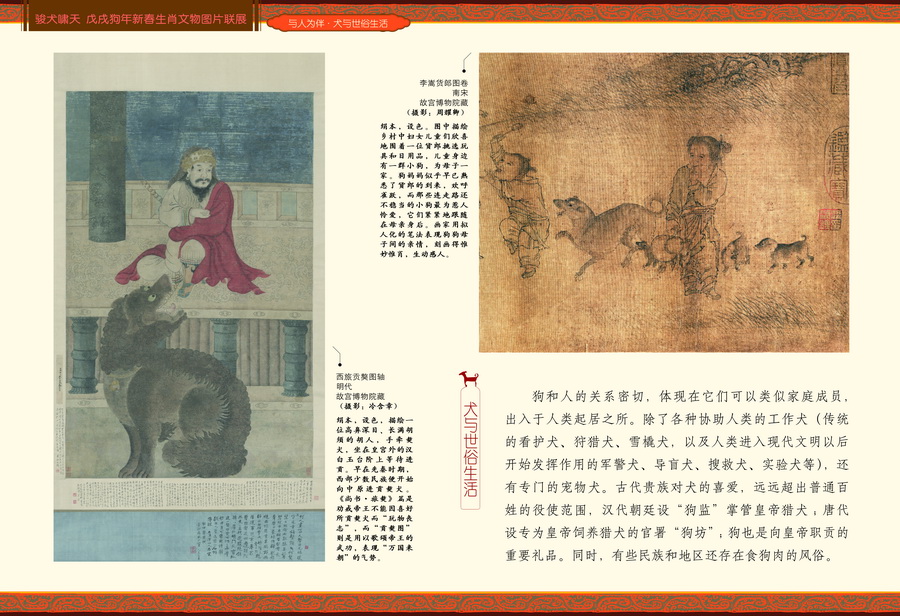 骏犬啸天 戊戌狗年新春生肖文物图片联展
与人为伴·犬与世俗生活
李嵩货郎图卷
南宋
故宫博物院藏
（摄影：周耀卿）
绢本，设色。图中描绘
乡村中妇女儿童们欣喜
地围着一位货郎挑选玩
具和日用品，儿童身边
有一群小狗，为母子一
家。狗妈妈似乎早已熟
悉了货郎的到来，欢呼
雀跃，而那些连走路还
不稳当的小狗最为惹人
怜爱，它们紧紧地跟随
在母亲身后。画家用拟
人化的笔法表现狗狗母
子间的亲情，刻画得惟
妙惟肖，生动感人。
西旅贡獒图轴
明代
故宫博物院藏
（摄影：冷含章）
绢本，设色，描绘一
位高鼻深目、长满胡
须的胡人，手牵獒
犬，坐在皇宫外的汉
白玉台阶上等待进
贡。早在先秦时期，
西部少数民族便开始
向中原进贡獒犬。
《尚书·旅獒》篇是
劝戒帝王不能因喜好
所贡獒犬而“玩物丧
志”，而“贡獒图”
则是用以歌颂帝王的
武功，表现“万国来
朝”的气势。
犬与世俗生活
狗和人的关系密切，体现在它们可以类似家庭成员，
出入于人类起居之所。除了各种协助人类的工作犬（传统
的看护犬、狩猎犬、雪橇犬，以及人类进入现代文明以后
开始发挥作用的军警犬、导盲犬、搜救犬、实验犬等），还
有专门的宠物犬。古代贵族对犬的喜爱，远远超出普通百
姓的役使范围，汉代朝廷设“狗监”掌管皇帝猎犬；唐代
设专为皇帝饲养猎犬的官署“狗坊”；狗也是向皇帝职贡的
重要礼品。同时，有些民族和地区还存在食狗肉的风俗。